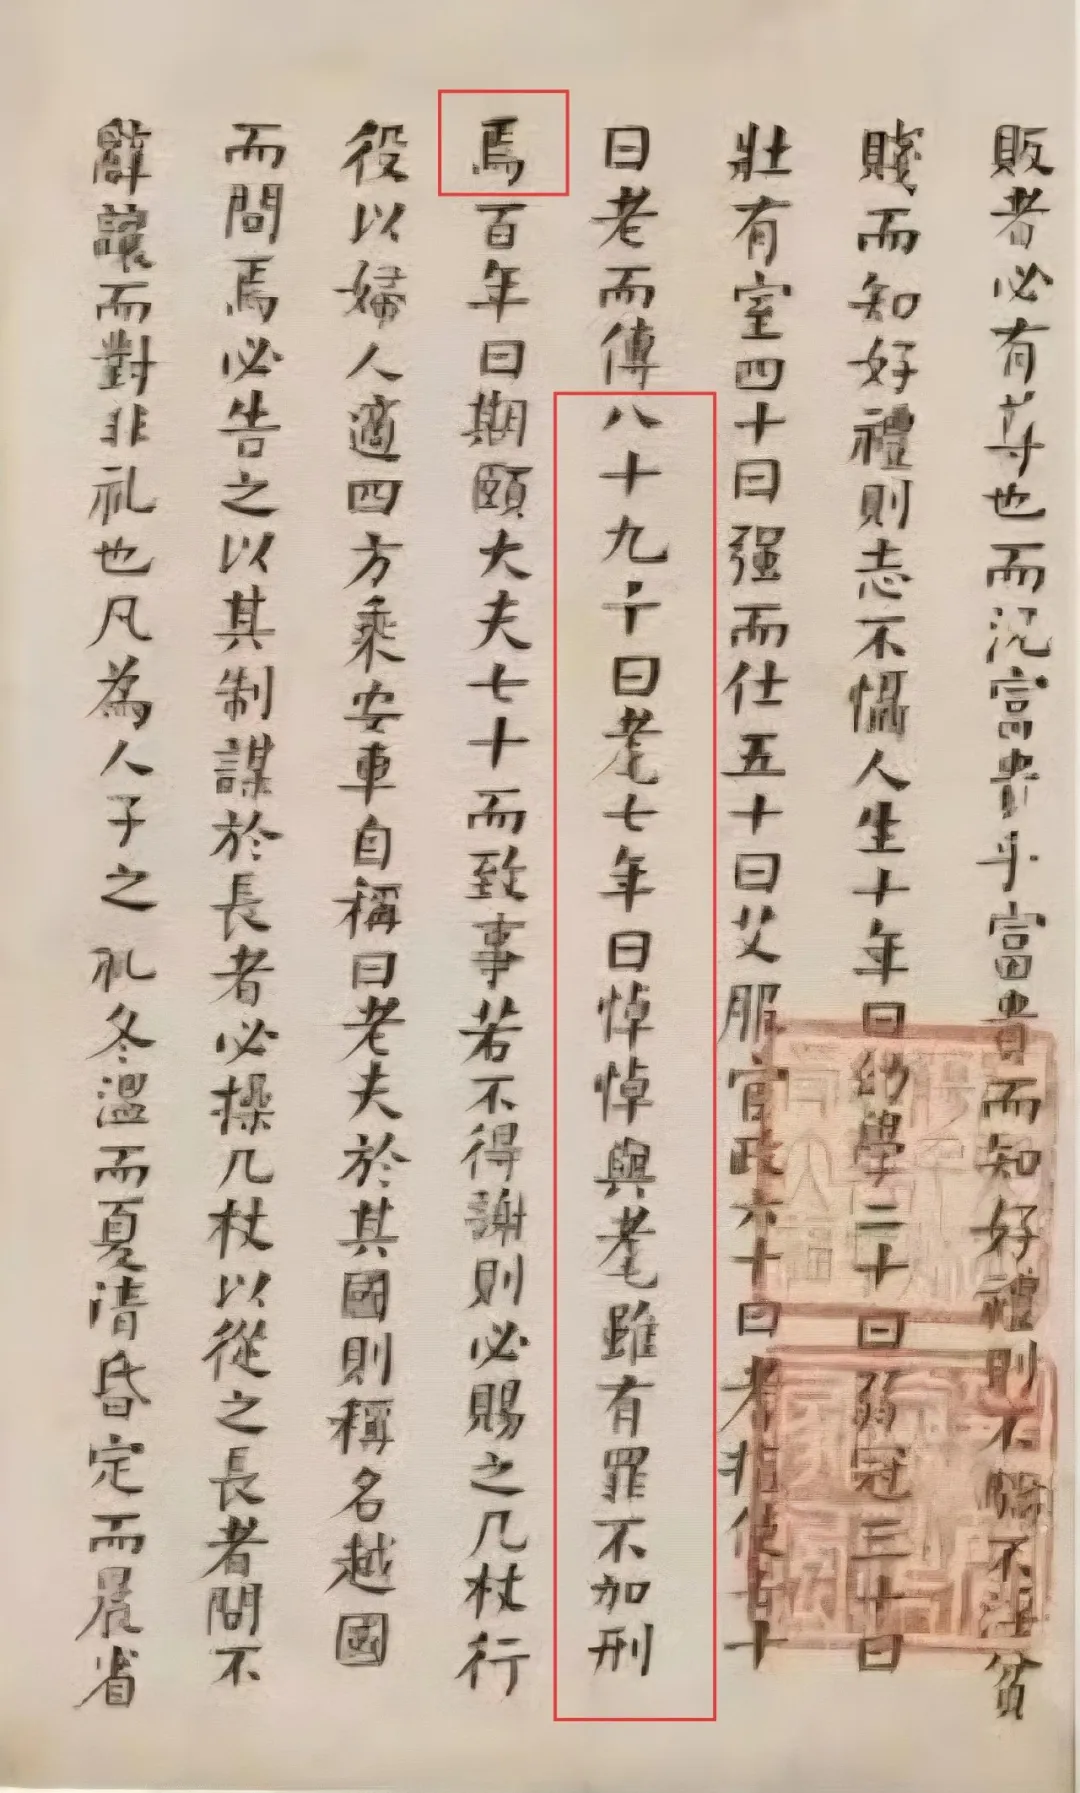 販者必有尊也而況富貴乎富貴而知好禮則不驕不淫貧
賤而知好禮則志不懾人生十年曰幼學二十曰弱冠三十曰
壯有室四十曰强而仕五十曰艾服官政六十曰耆指使七十
曰老而傳八十九十曰耄七年曰悼悼與耄雖有罪不加刑
焉百年曰期頤大夫七十而致事若不得謝則必賜之几杖行
役以婦人適四方乘安車自稱曰老夫於其國則稱名越國
而問焉必告之以其制謀於長者必操几杖以從之長者問不
辭讓而對非礼也凡為人子之礼冬温而夏凊昏定而晨省